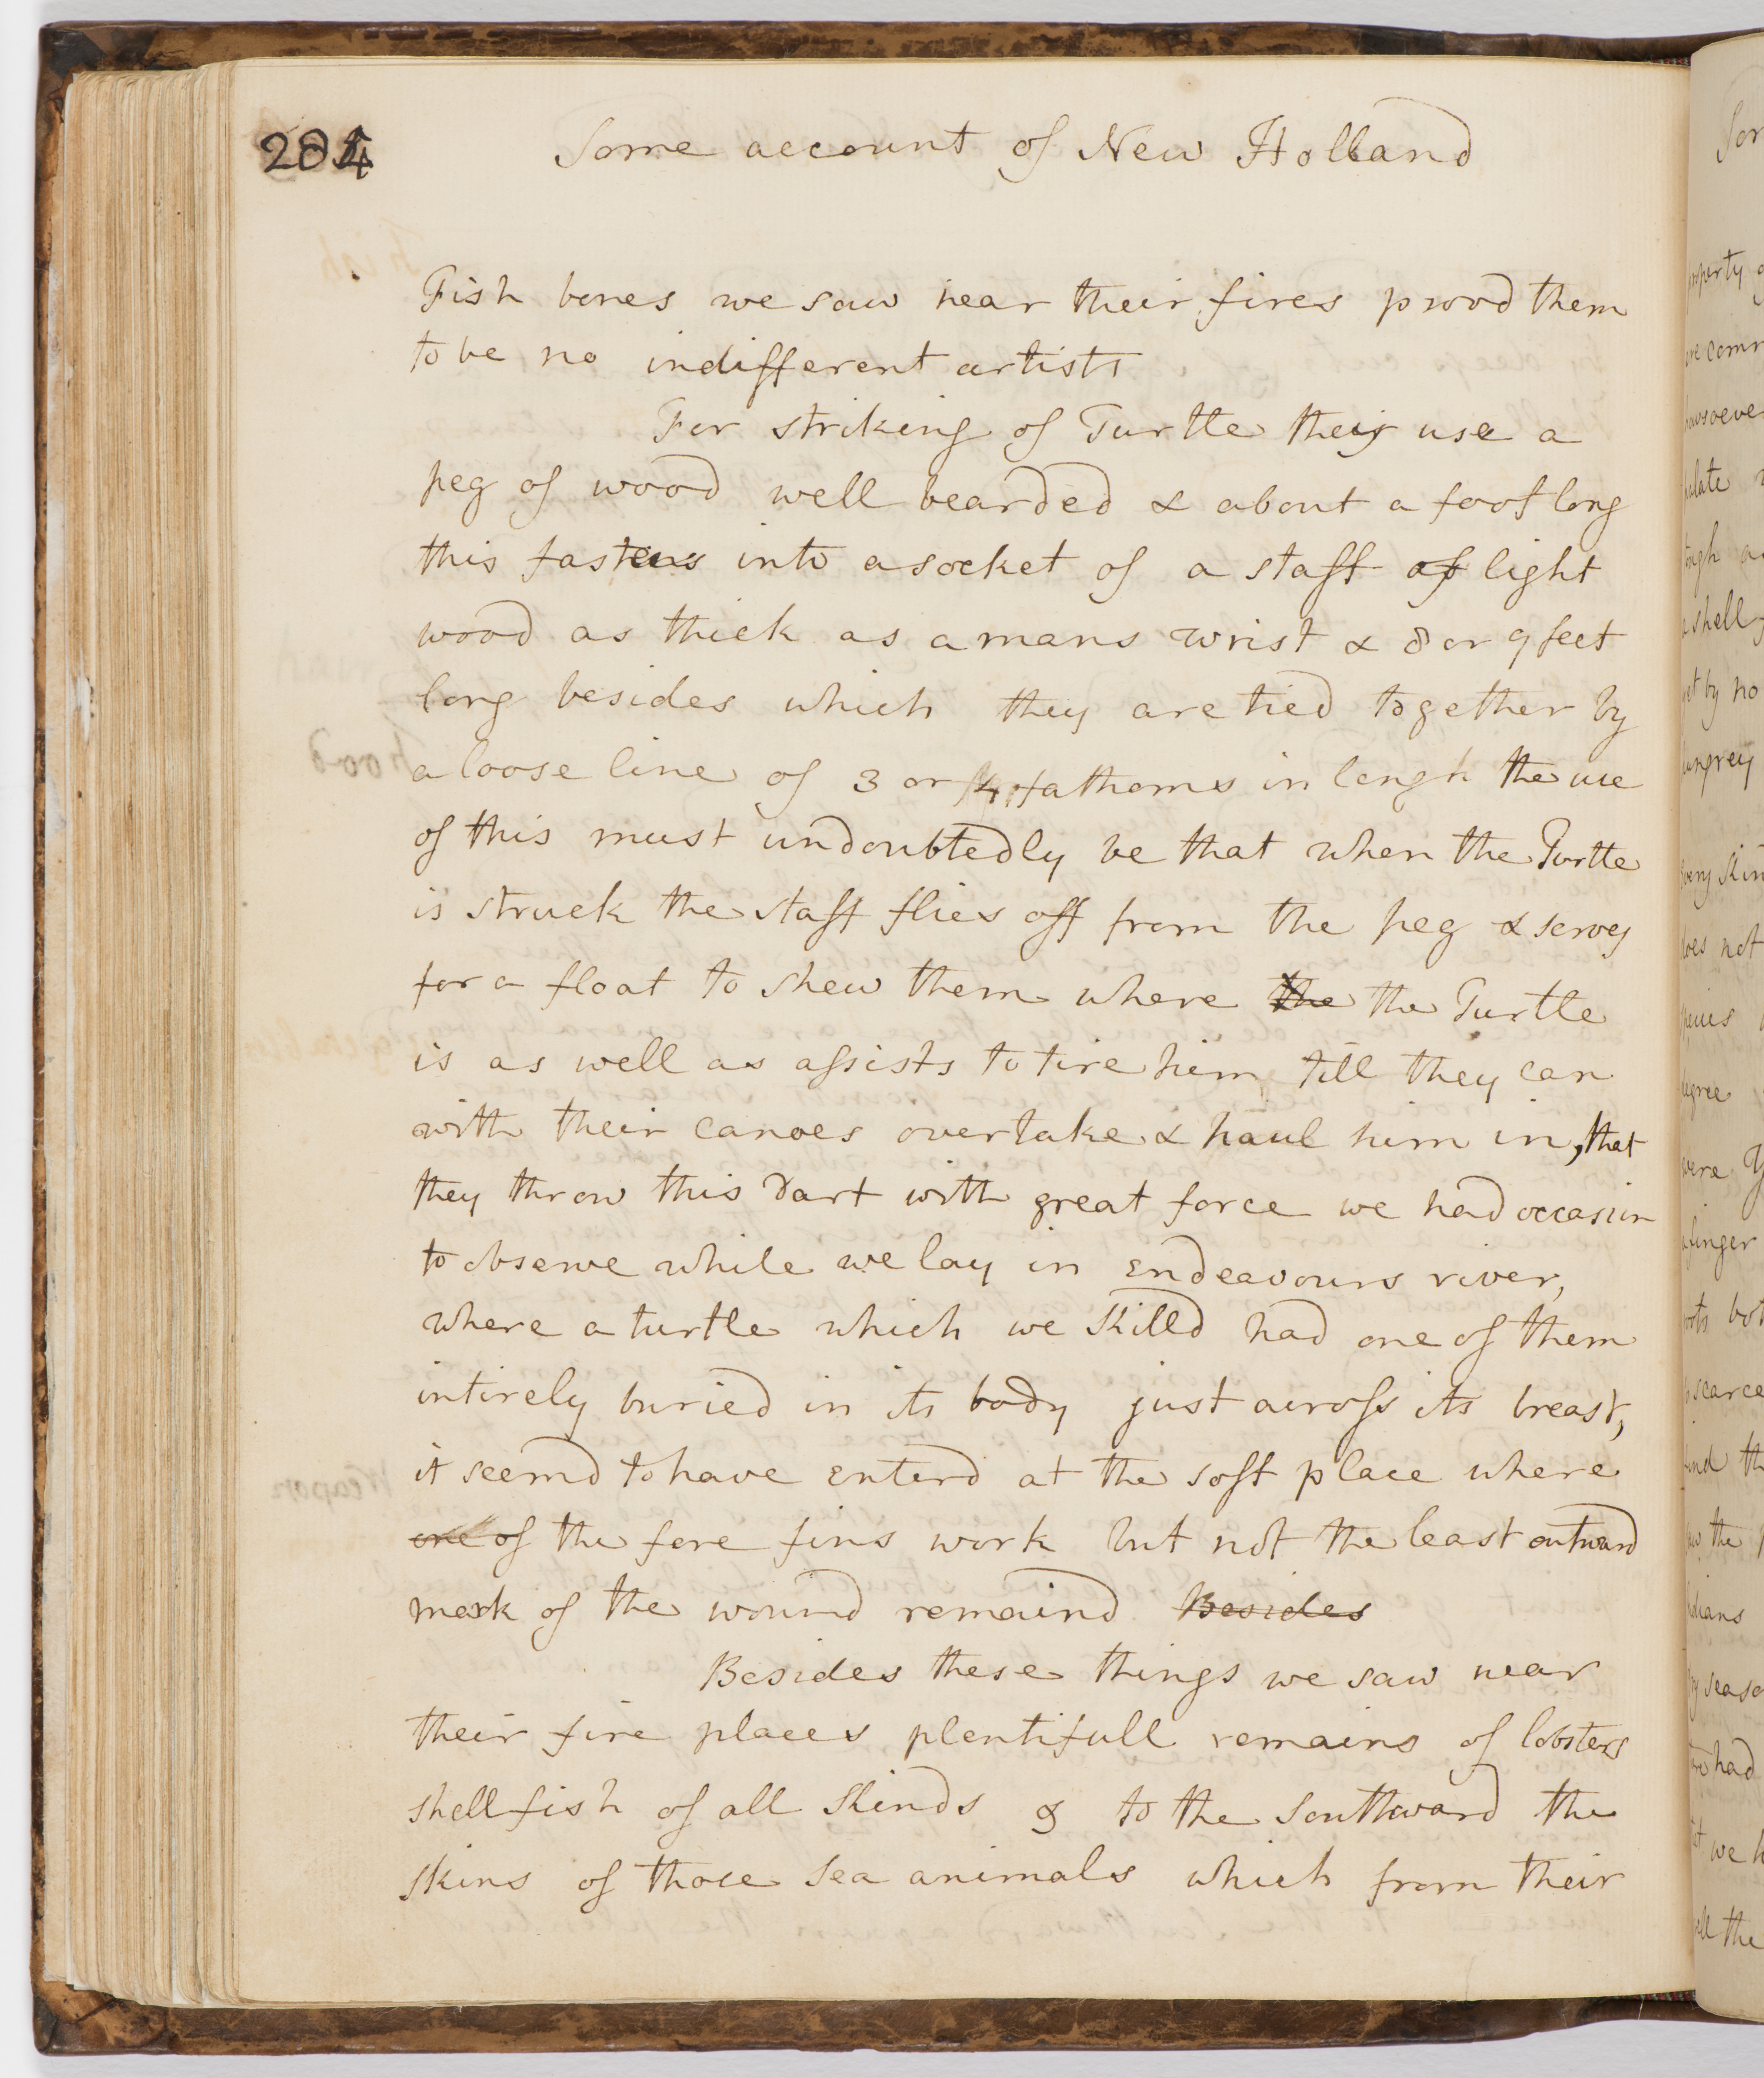 284
Some account of New Holland
Fish bones we saw near their fires provd them
to be no indifferent artists
For striking of Turtle they use a
peg of wood well bearded & about a foot long
this fastens into a socket of a staff of light
wood as thick as a mans wrist & 8 or 9 feet
long besides which they are tied together by
a loose line of 3 or 4 fathoms in lengh the use
of this must undoubtedly be that when the Turtle
is struck the staff flies off from the peg & serves
for a float to shew them where the the Turtle
is as well as assists to tire him till they can
with their canoes overtake & haul him in, that
they throw this dart with great force we had occasion
to observe while we lay in Endeavours river,
where a turtle which we killd had one of them
intirely buried in its body just across its breast,
it seemd to have enterd at the soft place where
one of the fore fins work but not the least outward
mark of the wound remaind Besides
Besides these things we saw near
their fire places plentifull remains of lobsters
shell fish of all kinds & to the Southward the
skins of those Sea animals which from their